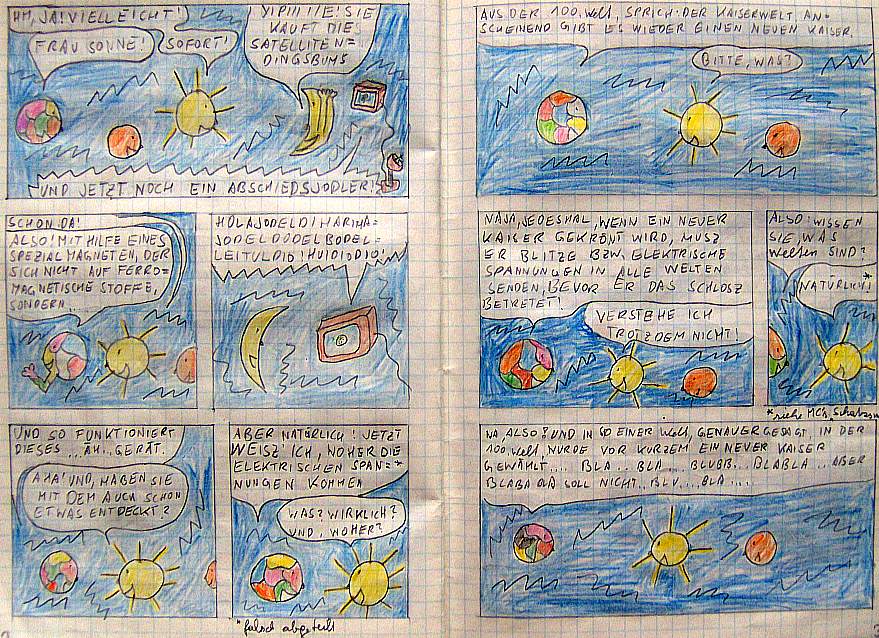 HM, JA! VIELLEICHT!
FRAU SONNE!
SOFORT!
YIPIIIIE! SIE
KAUFT DIES
SATELLITEN=
DINGSBUMS
UND JETZT NOCH EIN ABSCHIEDSJODLER!
SCHON DA!
ALSO! MIT HILFE EINES
SPEZIALMAGNETEN, DER
SICH NICHT AUF FERRO=
MAGNETISCHE STOFFE,
SONDERN...
HOLAJODELDIHARIHA=
JODELDODELBODEL=
LEITULDIO!HUIDIODIO!
UND SO FUNKTIONIERT
DIESES ...ÄH.. GERÄT.
AHA! UND, HABEN SIE
MIT DEM AUCH SCHON
ETWAS ENTDECKT?
ABER NATÜRLICH! JETZT
WEISZ ICH, WOHER DIE
ELEKTRISCHEN SPAN=*
NUNGEN KOMMEN
WAS? WIRKLICH?
UND, WOHER?
*falsch abgeteilt
AUS DER 100. Welt, SPRICH: DER KAISERWELT, AN-
SCHEINEND GIBT ES WIEDER EINEN NEUEN KAISER.
BITTE, WAS?
NAJA, JEDESMAL, WENN EIN NEUER
KAISER GEKRÖNT WIRD, MUSZ
ER BLITZE BZW. ELEKTRISCHE
SPANNUNGEN IN ALLE WELTEN
SENDEN, BEVOR ER DAS SCHLOSZ
BETRETET!
VERSTEHE ICH
TROTZDEM NICHT!
ALSO: WISSEN
SIE, WAS
Welten SIND?
NATÜRLICH!*
*siehe
NA ALSO! UND IN SO EINER Welt, GENAUER GESAGT, IN DER
100. Welt, WURDE VOR KURZEM EIN NEUER KAISER
GEWÄHLT.... BLA... BLA.... BLUBB.. BLABLA... ABER
BLABABLA SOLL NICHT.. BLU... BLA....